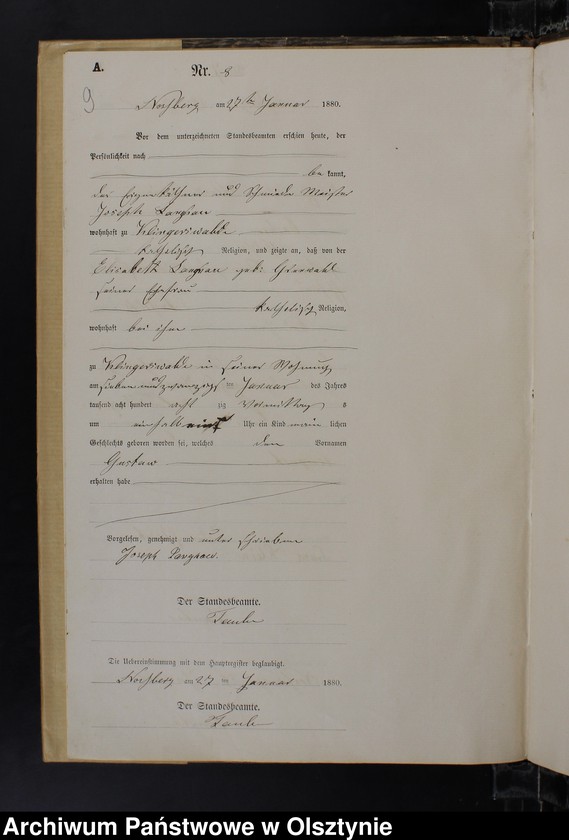 A.
Nr. 8
9
Nossberg am 27ten Januar 1880.
Vor dem unterzeichneten Standesbeamten erschien heute, der
Persönlichkeit nach
be kannt,
der Eigenkäthner und Schmiede Meister
Joseph
wohnhaft zu Klingerswalde
katholischer Religion, und zeigte an, daß von der
Elisabeth geb: Grunwald
seiner Ehefrau
katholischer Religion,
wohnhaft bei ihm
zu Klingerswalde in seiner Wohnung
am sieben und zwanzigsten Januar des Jahres
tausend acht hundert acht zig Vormittag s
um ein halb Uhr ein Kind männ lichen
Geschlechts geboren worden sei, welches den Vornamen
Gustaw
erhalten habe
Vorgelesen, genehmigt und unter schrieben
Joseph
Der Standesbeamte.
Die Uebereinstimmung mit dem Hauptregister beglaubigt.
Nossberg am 27 ten Januar 1880.
Der Standesbeamte.
Archiwum Państwowe w Olsztynie